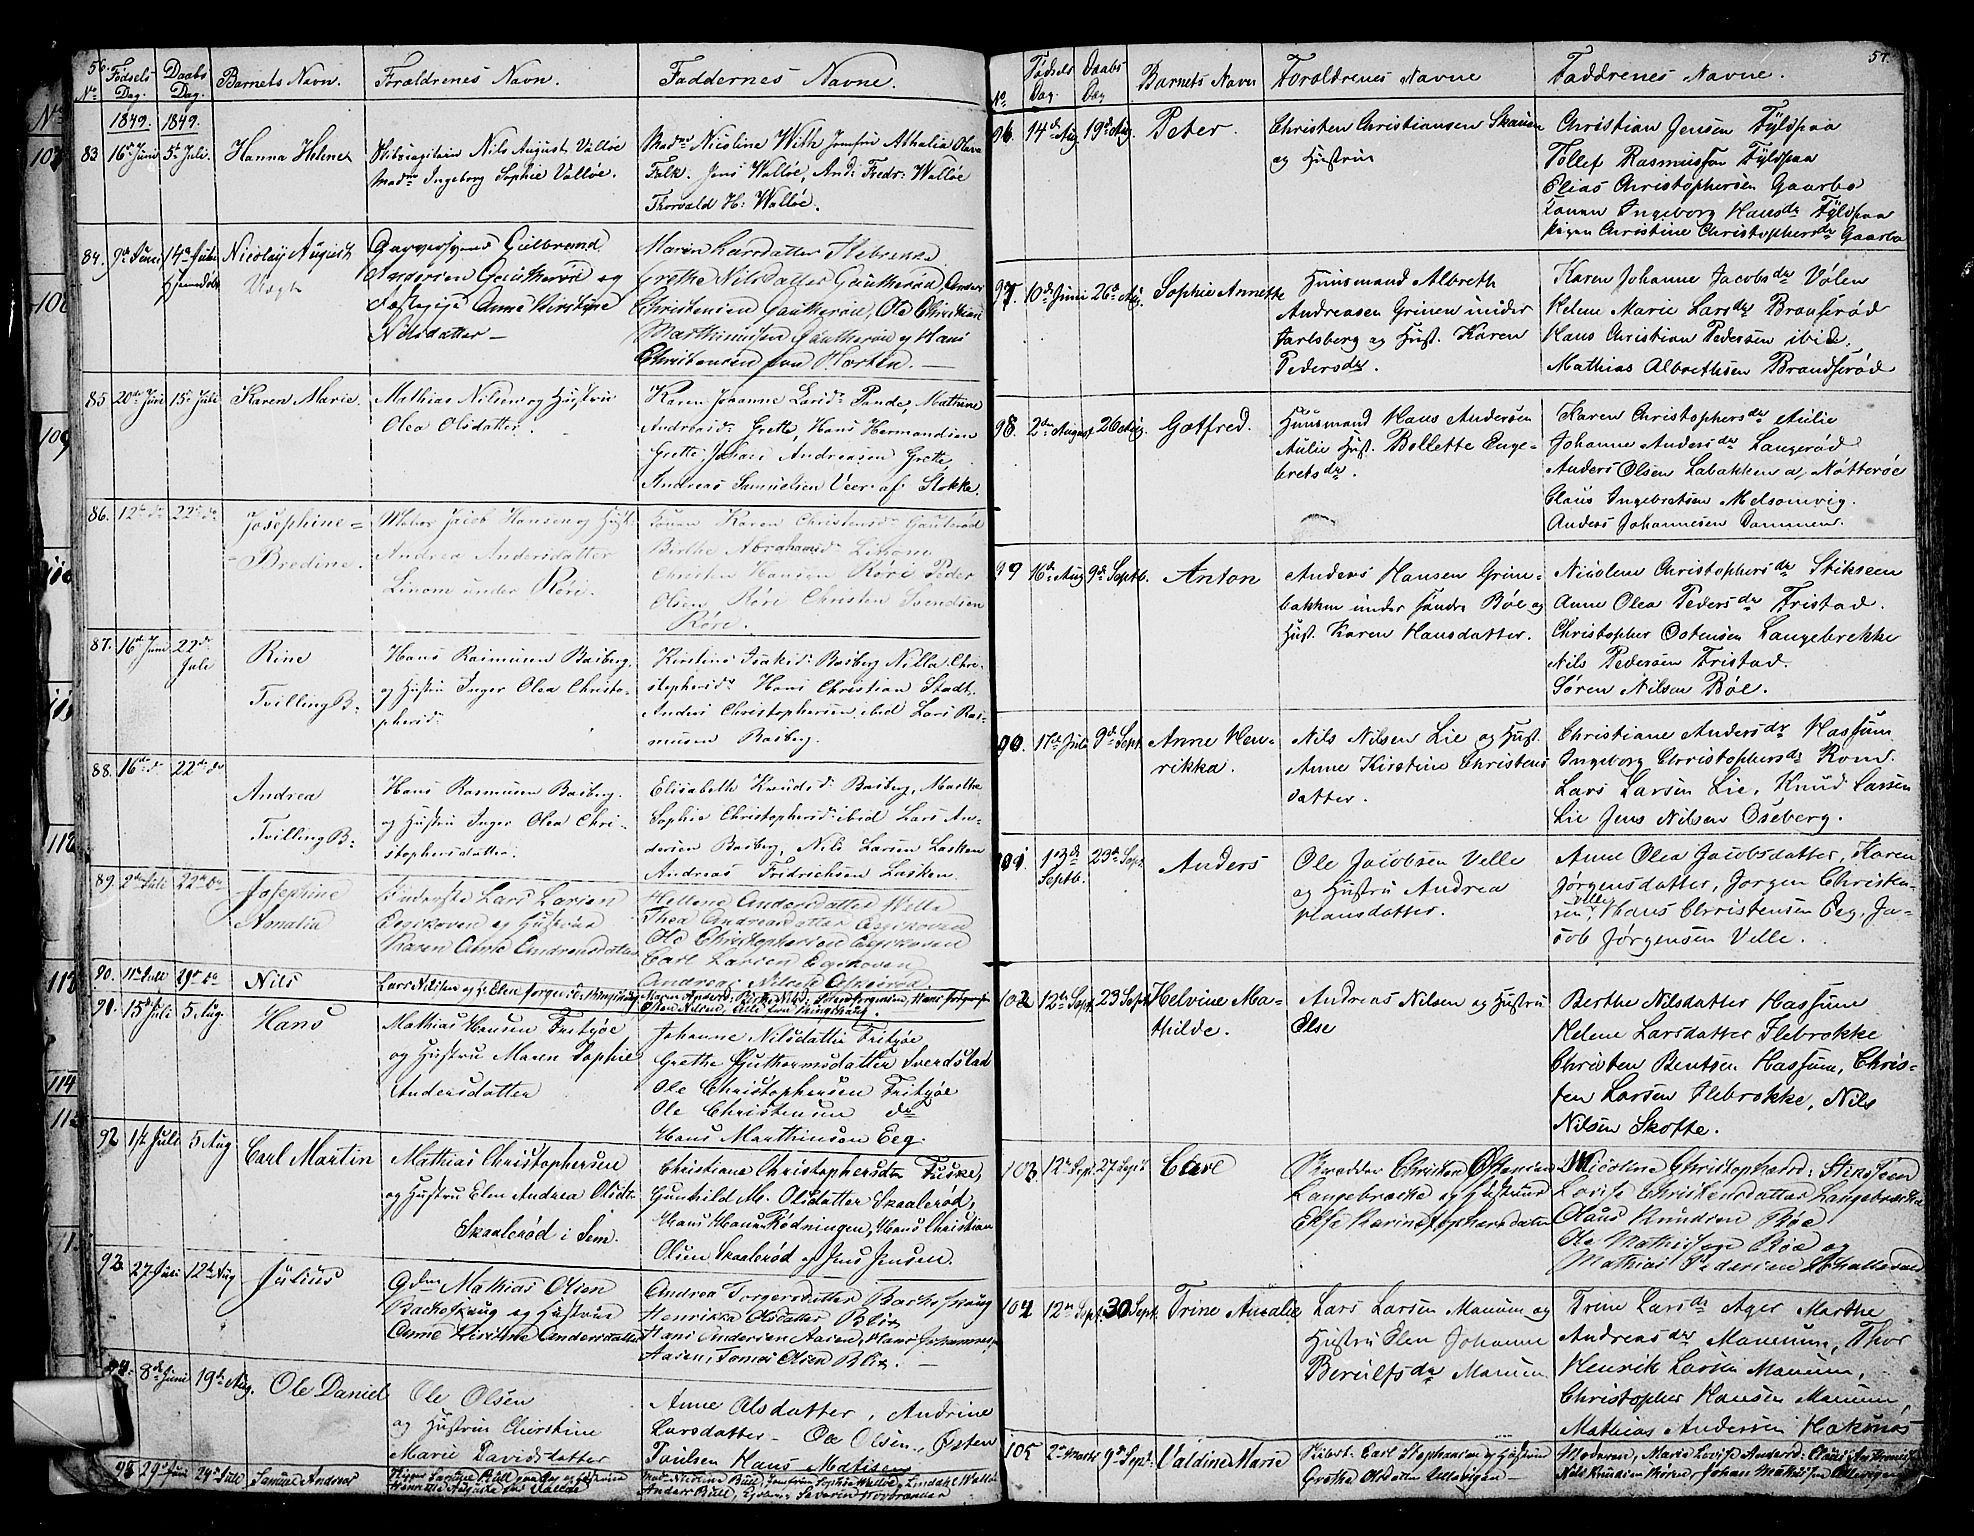 56.
No. Fødsels Dag. Daabs Dag. Barnets Navn. Forældrenes Navn. Faddernes Navne.
1849. 1849.
83 16de Juni 5te Juli. Hanna Helene
Nils August Valløe
Madme Ingeborg Sophie Valløe.
Madme Nicoline With Jomfru Athalia Olava
Falk. Jens Walløe, And: Fredr: Walløe
Thorvald H: Walløe.
84. 9de Juni 14de Juli Nicolay August
Gulbrand
Andersen Gautherød og
Anne Kirstine
Nilsdatter
Maren Larsdatter Ilebrekke
Grethe Nilsdatter Gautherød, Anders
Christensen Gautherød, Ole Christian
Marthinusen Gautherød og Hans
Christensen fra Horten.
85 20de Juni 15de Juli Karen Marie.
Mathias Nilsen og Hustrue
Olea Olsdatter.
Karen Johanne Larsdr Pande, Mathine
Andreasdr Grette, Hans Hermandsen
Grette Andreasen Grette,
Andreas Samuelsen Veer af Stokke.
86. 12te do 22de do Josephine
Bredine.
Jacob Hansen og Hust.
Andrea Andersdatter
Linom under Røri.
Karen Christensdr Gautrød
Birthe Abrahamsdr Linom
Christen Hansen Røri Peder
Olsen Røri Christen Svendsen
Røri.
87. 16de Juni 22de Juli Rine
Tvilling B.
Hans Rasmusen Basberg,
og Hustru Inger Olea Christo-
phersdr
Kirstine Isaksdr Basberg Nilla Chri-
stophersdr Hans Christian Stadt,
Anders Christophersen ibid Lars Ras-
musen Basberg.
88. 16de do 22de do Andrea
Tvilling B.
Hans Rasmusen Basberg,
og Hustru Inger Olea Chri-
stophersdatter.
Elisabeth Knudsdr Basberg, Martha
Sophie Christophersdr ibid Lars An-
dersen Basberg, Nils Larsen Lasken
Andreas Fridrichsen Lasken.
89. 2den Juli 22de do Josephine
Amalia
Lars Larsen
Eegskoven og Hustrue
Karen Anne Andreasdatter
Hellene Andersdatter Wille
Thea Andreasdatter Eegskoven
Ole Christophersen Eegskoven
Carl Larsen Egeskoven
90. 11te Juli 29de do Nils
Lars Nilsen og H. Elen Jørgensdr
91. 15de Juli 5 Aug. Hans
Mathias Hansen Tritjøe
og Hustru Maren Sophie
Andersdatter
Johanne Nilsdatter Tritjøe
Grethe Guthormsdatter Sverdstad
Ole Christophersen Tritjøe
Ole Christensen do
Hans Marthinsen Eeg.
92 17 Juli 5 Aug Carl Martin
Mathias Christophersen
og Hustru Elen Andrea Olsdr
Skaalerød i Sem.
Christiane Christophersdtr Fuske,
Gunhild M. Olsdatter Skaalerød,
Hans Hansen Rødningen, Hans Christian
Olsen Skaalerød og Jens Jensen.
93 27 Juli 12te Aug Julius
Mathias Olsen
Backeskaug og Hustrue
Anne Kirstine Andersdatter
Andrea Torgersdatter Backeskaug
Henrikke Olsdatter Blix
Hans Andersen Aasen, Hans Johannes
Aasen, Tomas Olsen Blix.
94. 8de Juni 19de Aug. Ole Daniel
Ole Olsen
og Hustrue Chirstine
Marie Davidsdatter
Anne Olsdatter, Andrine
Larsdatter - Ole Olsen, Østen
Poulsen Hans Mathisen
95 29de Juni 29de Juli Samuel Andreas
57.
No. Fødsels Dag Daabs Dag Barnets Navn Forældrenes Navne Faddrenes Navne.
96. 14de Aug. 19de Aug. Peter.
Christen Christiansen Skauen
og Hustrue
Christian Jensen Fyldpaa
Tollef Rasmussen Fyldpaa
Elias Christophersen Gaarbo
Konen Ingeborg Hansdr Fyldpaa
Pigen Christine Christophersdr Gaarbo
97. 10de Juni 26de Aug. Sophie Annette
Huusmand Albreth
Andreasen Grinen under
Jarlsberg og Hust. Karen
Pedersdr.
Karen Johanne Jacobsdr Volen
Helene Marie Larsdr Brandserød
Hans Christian Pedersen ibid.
Mathias Albrethsen Brandserød
98. 2den August 26 Aug. Gotfred.
Huusmand Hans Andersen
Aulie Hust. Bollette Enge-
bretsdr.
Karen Christophersdr Aulie
Johanne Andersdr Langerød
Anders Olsen Labakken a, Nøtterøe
Claus Ingebretsen Melsomvig.
Anders Johannesen Dammen.
99 16de Aug 9de Septb. Anton
Anders Hansen Grim-
bakken under søndre Bøe og
Hust. Karen Hansdatter.
Nicolene Christophersdr Stikseen
Anne Olea Pedersdr Fristad.
Christopher Ostensen Langebrekke
Nils Pedersen Fristad.
Søren Nilsen Bøe.
100. 17de Juli 9de Sept. Anne Hen-
rikka.
Nils Nilsen Lie og Hust.
Anne Kirstine Christens
datter.
Christiane Andersdr Hassum
Ingeborg Christophersdr Rom.
Lars Larsen Lie, Knud Larsen
Lie Jens Nilsen Oseberg.
101. 13de Septb. 23de Sept. Anders
Ole Jacobsen Velle
og Hustru Andrea
Hansdatter.
Anne Olea Jacobsdatter, Karen
Jørgensdatter, Jørgen Christen-
sen Velle, Hans Christensen Eeg, Ja-
cob Jørgensen Velle.
102 12te Sept. 23 Sept. Helvine Ma-
thilde.
Andreas Nilsen og Hustru
Else
Berthe Nilsdatter Hassum
Helene Larsdatter Ilebrokke
Christen Bentsen Hassum, Chris-
ten Larsen Ilebrokke, Nils
Nilsen Skofte.
103. 12te Sept 27 Sept Carl
Christen Ostensen
Langebrække og Hustrue
Nicoline Christophersd: Stenseen
Lovise Christensdatter Langebrække
Claus Knudsen Bøe
Ole Mathisen Bøe og
Mathias Pedersen
104 12te Sept. 30 Sept. Trine Amalie
Lars Larsen Manum og
Hustru Elen Johanne
Berulfsdr Manum
Trine Larsdr Ager Marthe
Andreasdr Manum, Thor
Henrik Larsen Manum,
Christopher Hansen Manum
Mathias Andersen Haksnøs
105 2den Marts 9de Sept. Valdine Marie
No 107 108 109 112 114